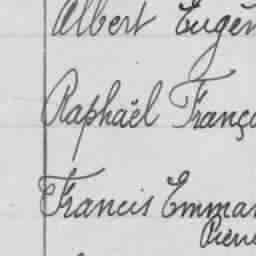 Albert Eugèn
Raphaël Franço
Francis Emman
Pierre